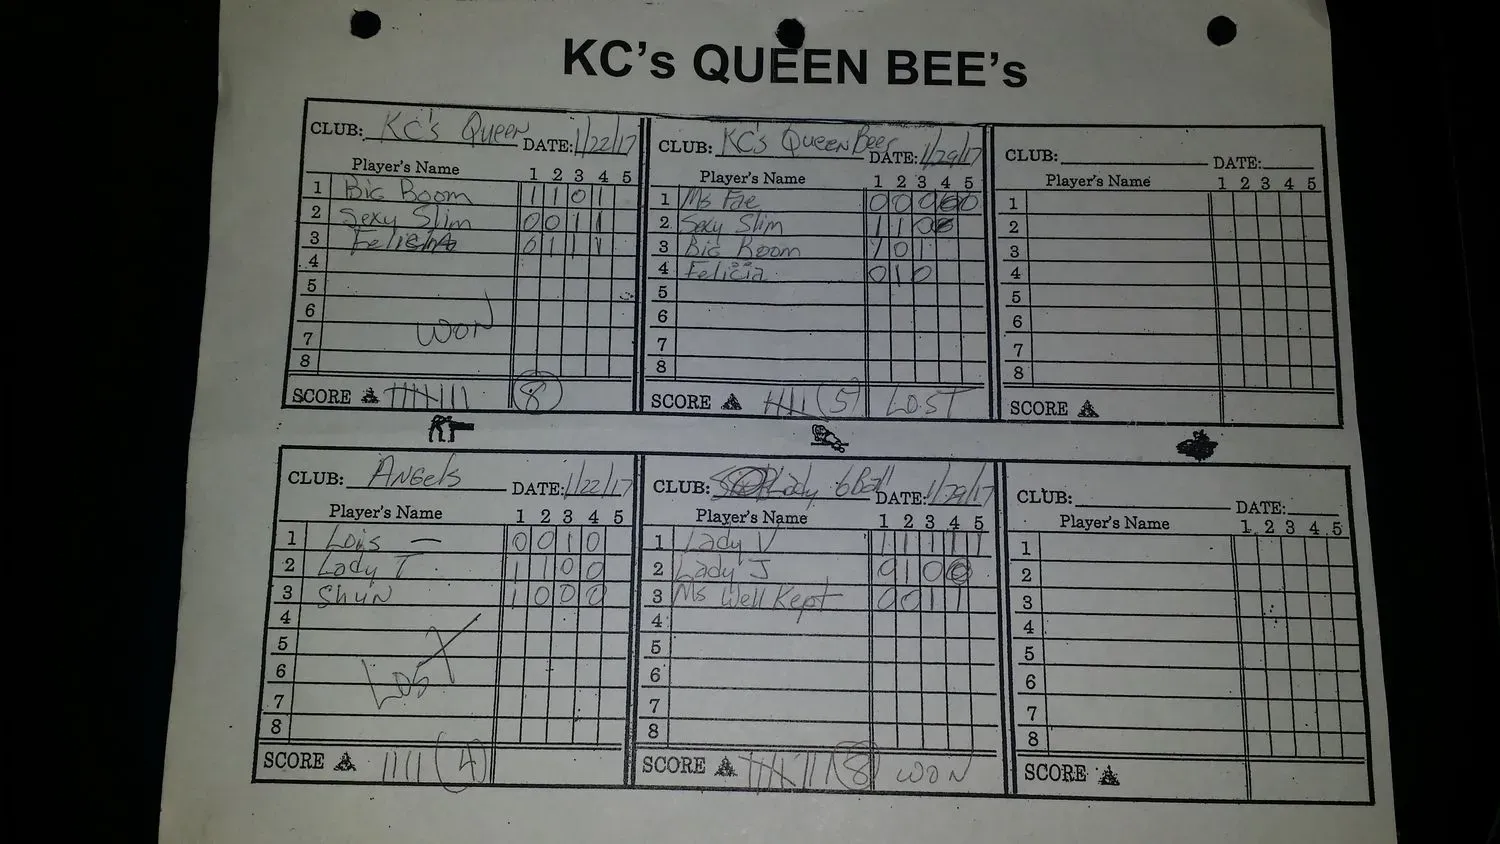 KC's QUEEN BEE's
CLUB: KC's Queen DATE: 1/22/17
Player's Name 1 2 3 4 5
1 Big Boom 1 1 0 1
2 Sexy Slim 0 0 1 1
3 Felicia 0 1 1 1
4
5
6
WON
7
8
SCORE 8
CLUB: KC's Queen Bees DATE: 1/29/17
Player's Name 1 2 3 4 5
1 Ms Fae 0 0 0 0
2 Sexy Slim 1 1 0
3 Big Boom 1 0 1
4 Felicia 0 1 0
5
6
7
8
SCORE (5) LOST
CLUB: DATE:
Player's Name 1 2 3 4 5
1
2
3
4
5
6
7
8
SCORE
CLUB: Angels DATE: 1/22/17
Player's Name 1 2 3 4 5
1 Lois — 0 0 1 0
2 Lady T 1 1 0 0
3 Shun 1 0 0 0
4
5
6
Lost
7
8
SCORE (4)
CLUB: Lady 6Ball DATE: 1/29/17
Player's Name 1 2 3 4 5
1 Lady V 1 1 1 1 1
2 Lady J 0 1 0 0
3 Ms Well Kept 0 0 1 1
4
5
6
7
8
SCORE (8) WON
CLUB: DATE:
Player's Name 1 2 3 4 5
1
2
3
4
5
6
7
8
SCORE